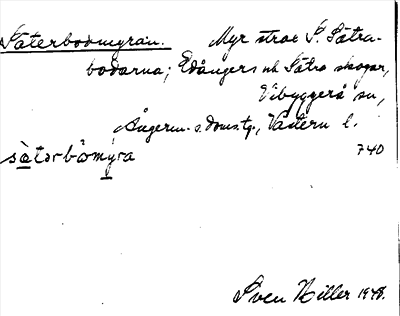 Säterbodmyran. Myr strax S. Sätra-
bodarna; Edångers och Sätra skogar,
Vibyggerå sn,
Ångerm. s. doms.tg., Västern. l.
sätərbòmýra 740
Sven Hiller 1948.